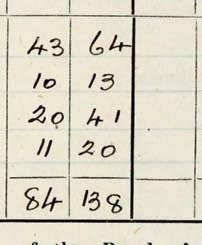 43 64
10 13
20 41
11 20
84 138